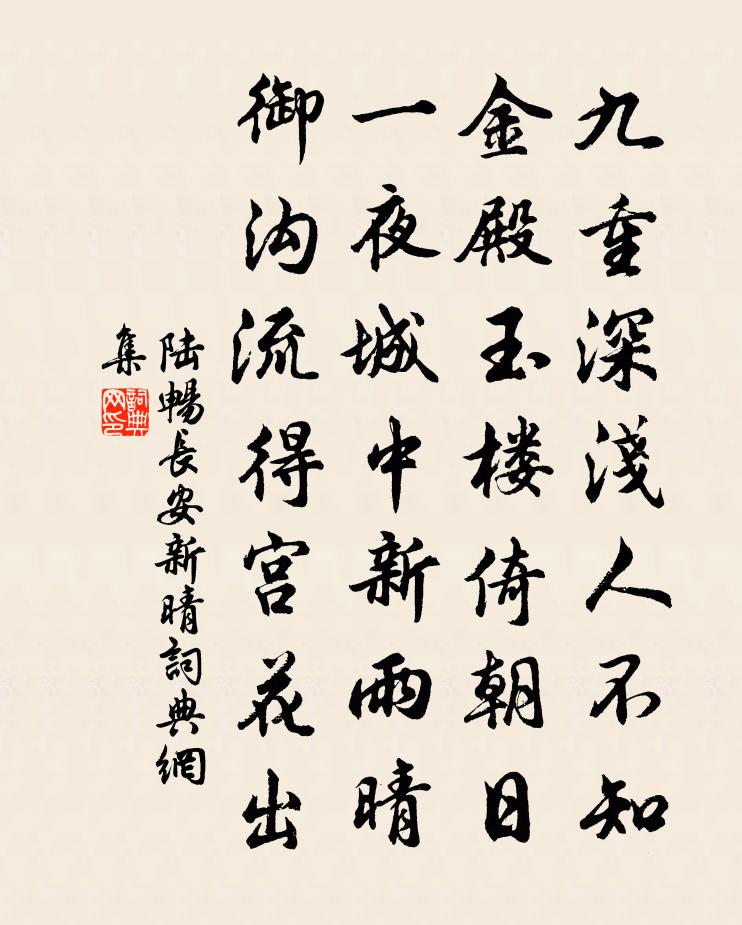 九重深淺人不知
金殿玉楼倚朝日
一夜城中新雨晴
御沟流得宫花出
陆暢長安新晴詞典網
集
詞典
网印